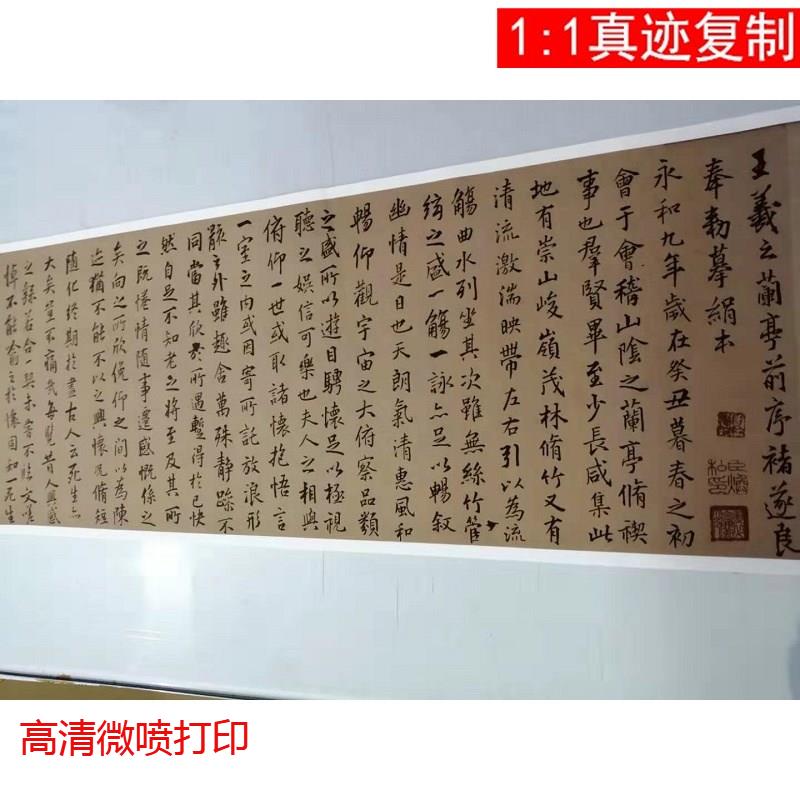 1:1真迹复制
王羲之蘭亭前序褚遂良
奉勅摹絹本
永和九年歲在癸丑暮春之初
會于會稽山陰之蘭亭脩禊
事也羣賢畢至少長咸集此
地有崇山峻嶺茂林脩竹又有
清流激湍映帶左右引以為流
觴曲水列坐其次雖無絲竹管
絃之盛一觴一詠亦足以暢敘
幽情是日也天朗氣清惠風和
暢仰觀宇宙之大俯察品類
之盛所以遊目騁懷足以極視
聽之娛信可樂也夫人之相與
俯仰一世或取諸懷抱悟言
一室之內或因寄所託放浪形
骸之外雖趣舍萬殊靜躁不
同當其欣於所遇暫得於己快
然自足不知老之將至及其所
之既惓情隨事遷感慨係之
矣向之所欣俛仰之間以為陳
迹猶不能不以之興懷況脩短
隨化終期於盡古人云死生亦
大矣豈不痛哉每覽昔人興感
之若合一契未嘗不臨文嗟
悼不能喻之於懷固知一死生
高清微喷打印